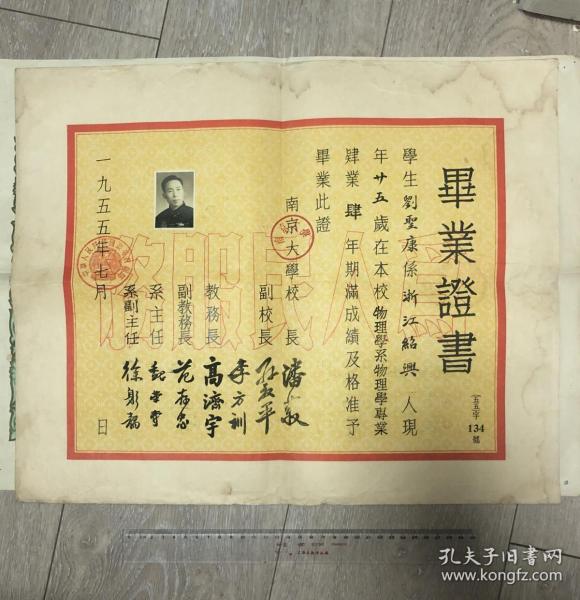 畢業證書
五五字
134
號
學生劉聖康係浙江紹興人現
年廿五歲在本校物理學系物理學專業
肄業肆年期滿成績及格准予
畢業此證
南京大學校長潘菽
副校長孫叔平
李方訓
教務長高濟宇
副教務長范存忠
系主任
系副主任徐躬耦
一九五五年七月日
為人民服務
孔夫子旧书网
www.kongfz.com